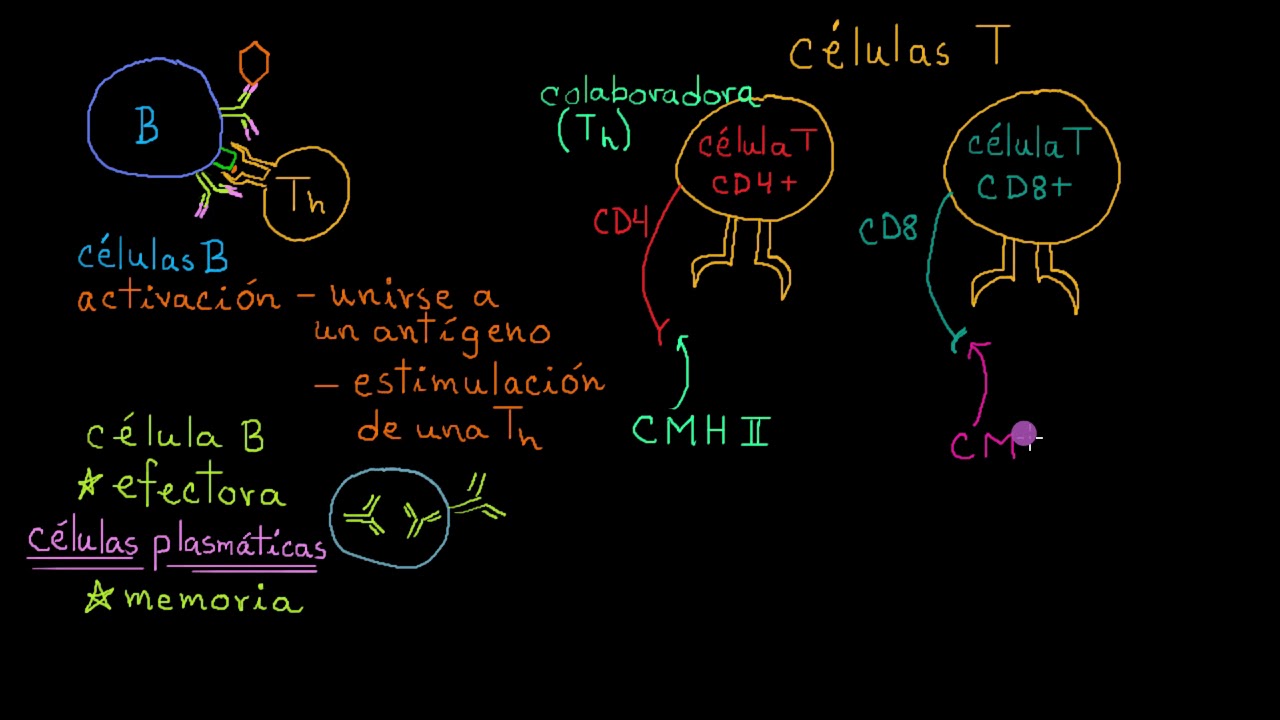 B
Th
células B
activación – unirse a
un antígeno
– estimulación
de una Th
célula B
* efectora
células plasmáticas
* memoria
Células T
colaboradora
(Th)
célula T
CD4+
CD4
CMH II
célula T
CD8+
CD8
CM